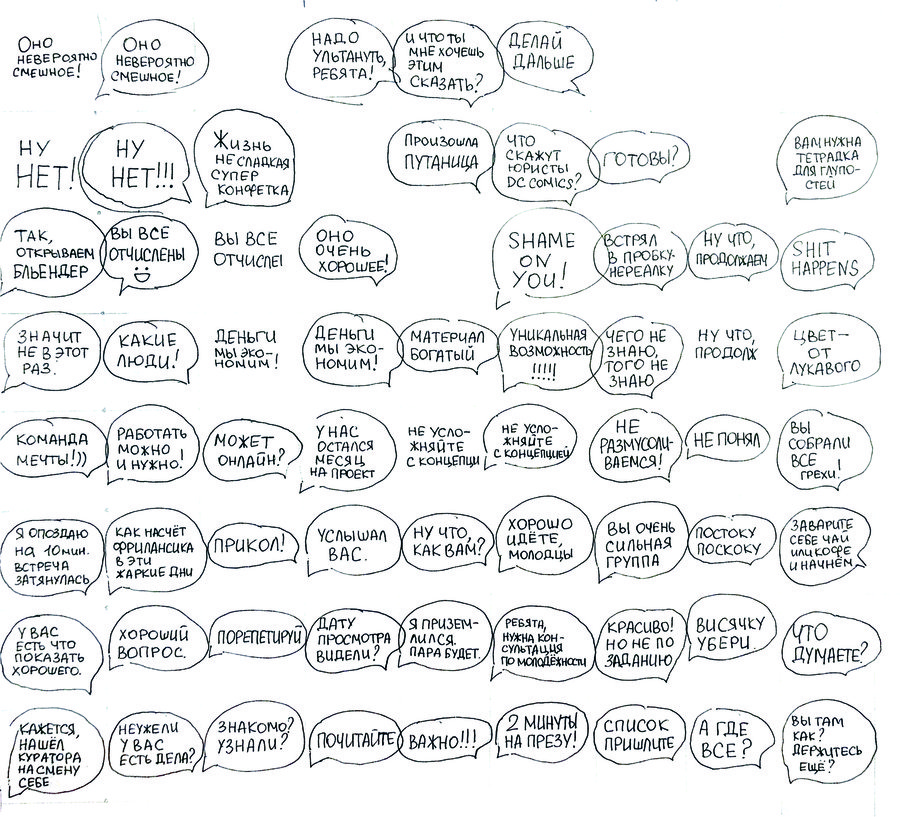 ОНО
НЕВЕРОЯТНО
СМЕШНОЕ!
ОНО
НЕВЕРОЯТНО
СМЕШНОЕ!
НАДО
УЛЬТАНУТЬ,
РЕБЯТА!
И ЧТО ТЫ
МНЕ ХОЧЕШЬ
ЭТИМ
СКАЗАТЬ?
ДЕЛАЙ
ДАЛЬШЕ
НУ
НЕТ!
НУ
НЕТ!!!
ЖИЗНЬ
НЕ СЛАДКАЯ
СУПЕР
КОНФЕТКА
ПРОИЗОШЛА
ПУТАНИЦА
ЧТО
СКАЖУТ
ЮРИСТЫ
DC COMICS?
ГОТОВЫ?
ВАМ НУЖНА
ТЕТРАДКА
ДЛЯ ГЛУПО-
СТЕЙ
ТАК,
ОТКРЫВАЕМ
БЛЬЕНДЕР
ВЫ ВСЕ
ОТЧИСЛЕНЫ
ВЫ ВСЕ
ОТЧИСЛЕ
ОНО
ОЧЕНЬ
ХОРОШЕЕ!
SHAME
ON
YOU!
ВСТРЯЛ
В ПРОБКУ-
НЕРЕАЛКУ
НУ ЧТО,
ПРОДОЛЖАЕМ
SHIT
HAPPENS
ЗНАЧИТ
НЕ В ЭТОТ
РАЗ.
КАКИЕ
ЛЮДИ!
ДЕНЬГИ
МЫ ЭКО-
НОМИМ!
ДЕНЬГИ
МЫ ЭКО-
НОМИМ!
МАТЕРИАЛ
БОГАТЫЙ
УНИКАЛЬНАЯ
ВОЗМОЖНОСТЬ
!!!!!
ЧЕГО НЕ
ЗНАЮ,
ТОГО НЕ
ЗНАЮ
НУ ЧТО,
ПРОДОЛЖ
ЦВЕТ—
ОТ
ЛУКАВОГО
КОМАНДА
МЕЧТЫ!))
РАБОТАТЬ
МОЖНО
И НУЖНО!
МОЖЕТ
ОНЛАЙН?
У НАС
ОСТАЛСЯ
МЕСЯЦ
НА ПРОЕКТ
НЕ УСЛО-
ЖНЯЙТЕ
С КОНЦЕПЦИ
НЕ УСЛО-
ЖНЯЙТЕ
С КОНЦЕПЦИЕЙ
НЕ
РАЗМУСОЛИ-
ВАЕМСЯ!
НЕ ПОНЯЛ
ВЫ
СОБРАЛИ
ВСЕ
ГРЕХИ!
Я ОПОЗДАЮ
НА 10 МИН.
ВСТРЕЧА
ЗАТЯНУЛАСЬ
КАК НАСЧЁТ
ФРИЛАНСИКА
В ЭТИ
ЖАРКИЕ ДНИ
ПРИКОЛ!
УСЛЫШАЛ
ВАС.
НУ ЧТО,
КАК ВАМ?
ХОРОШО
ИДЁТЕ,
МОЛОДЦЫ
ВЫ ОЧЕНЬ
СИЛЬНАЯ
ГРУППА
ПОСТОКУ
ПОСКОКУ
ЗАВАРИТЕ
СЕБЕ ЧАЙ
ИЛИ КОФЕ
И НАЧНЁМ
У ВАС
ЕСТЬ ЧТО
ПОКАЗАТЬ
ХОРОШЕГО.
ХОРОШИЙ
ВОПРОС.
ПОРЕПЕТИРУЙ
ДАТУ
ПРОСМОТРА
ВИДЕЛИ?
Я ПРИЗЕМ-
ЛИЛСЯ.
ПАРА БУДЕТ.
РЕБЯТА,
НУЖНА КОН-
СУЛЬТАЦИЯ
ПО МОЛОДЁЖНОСТИ
КРАСИВО!
НО НЕ ПО
ЗАДАНИЮ
ВИСЯЧКУ
УБЕРИ.
ЧТО
ДУМАЕТЕ?
КАЖЕТСЯ,
НАШЁЛ
КУРАТОРА
НА СМЕНУ
СЕБЕ
НЕУЖЕЛИ
У ВАС
ЕСТЬ ДЕЛА?
ЗНАКОМО?
УЗНАЛИ?
ПОЧИТАЙТЕ
ВАЖНО!!!
2 МИНУТЫ
НА ПРЕЗУ!
СПИСОК
ПРИШЛИТЕ
А ГДЕ
ВСЕ?
ВЫ ТАМ
КАК?
ДЕРЖИТЕСЬ
ЕЩЁ?